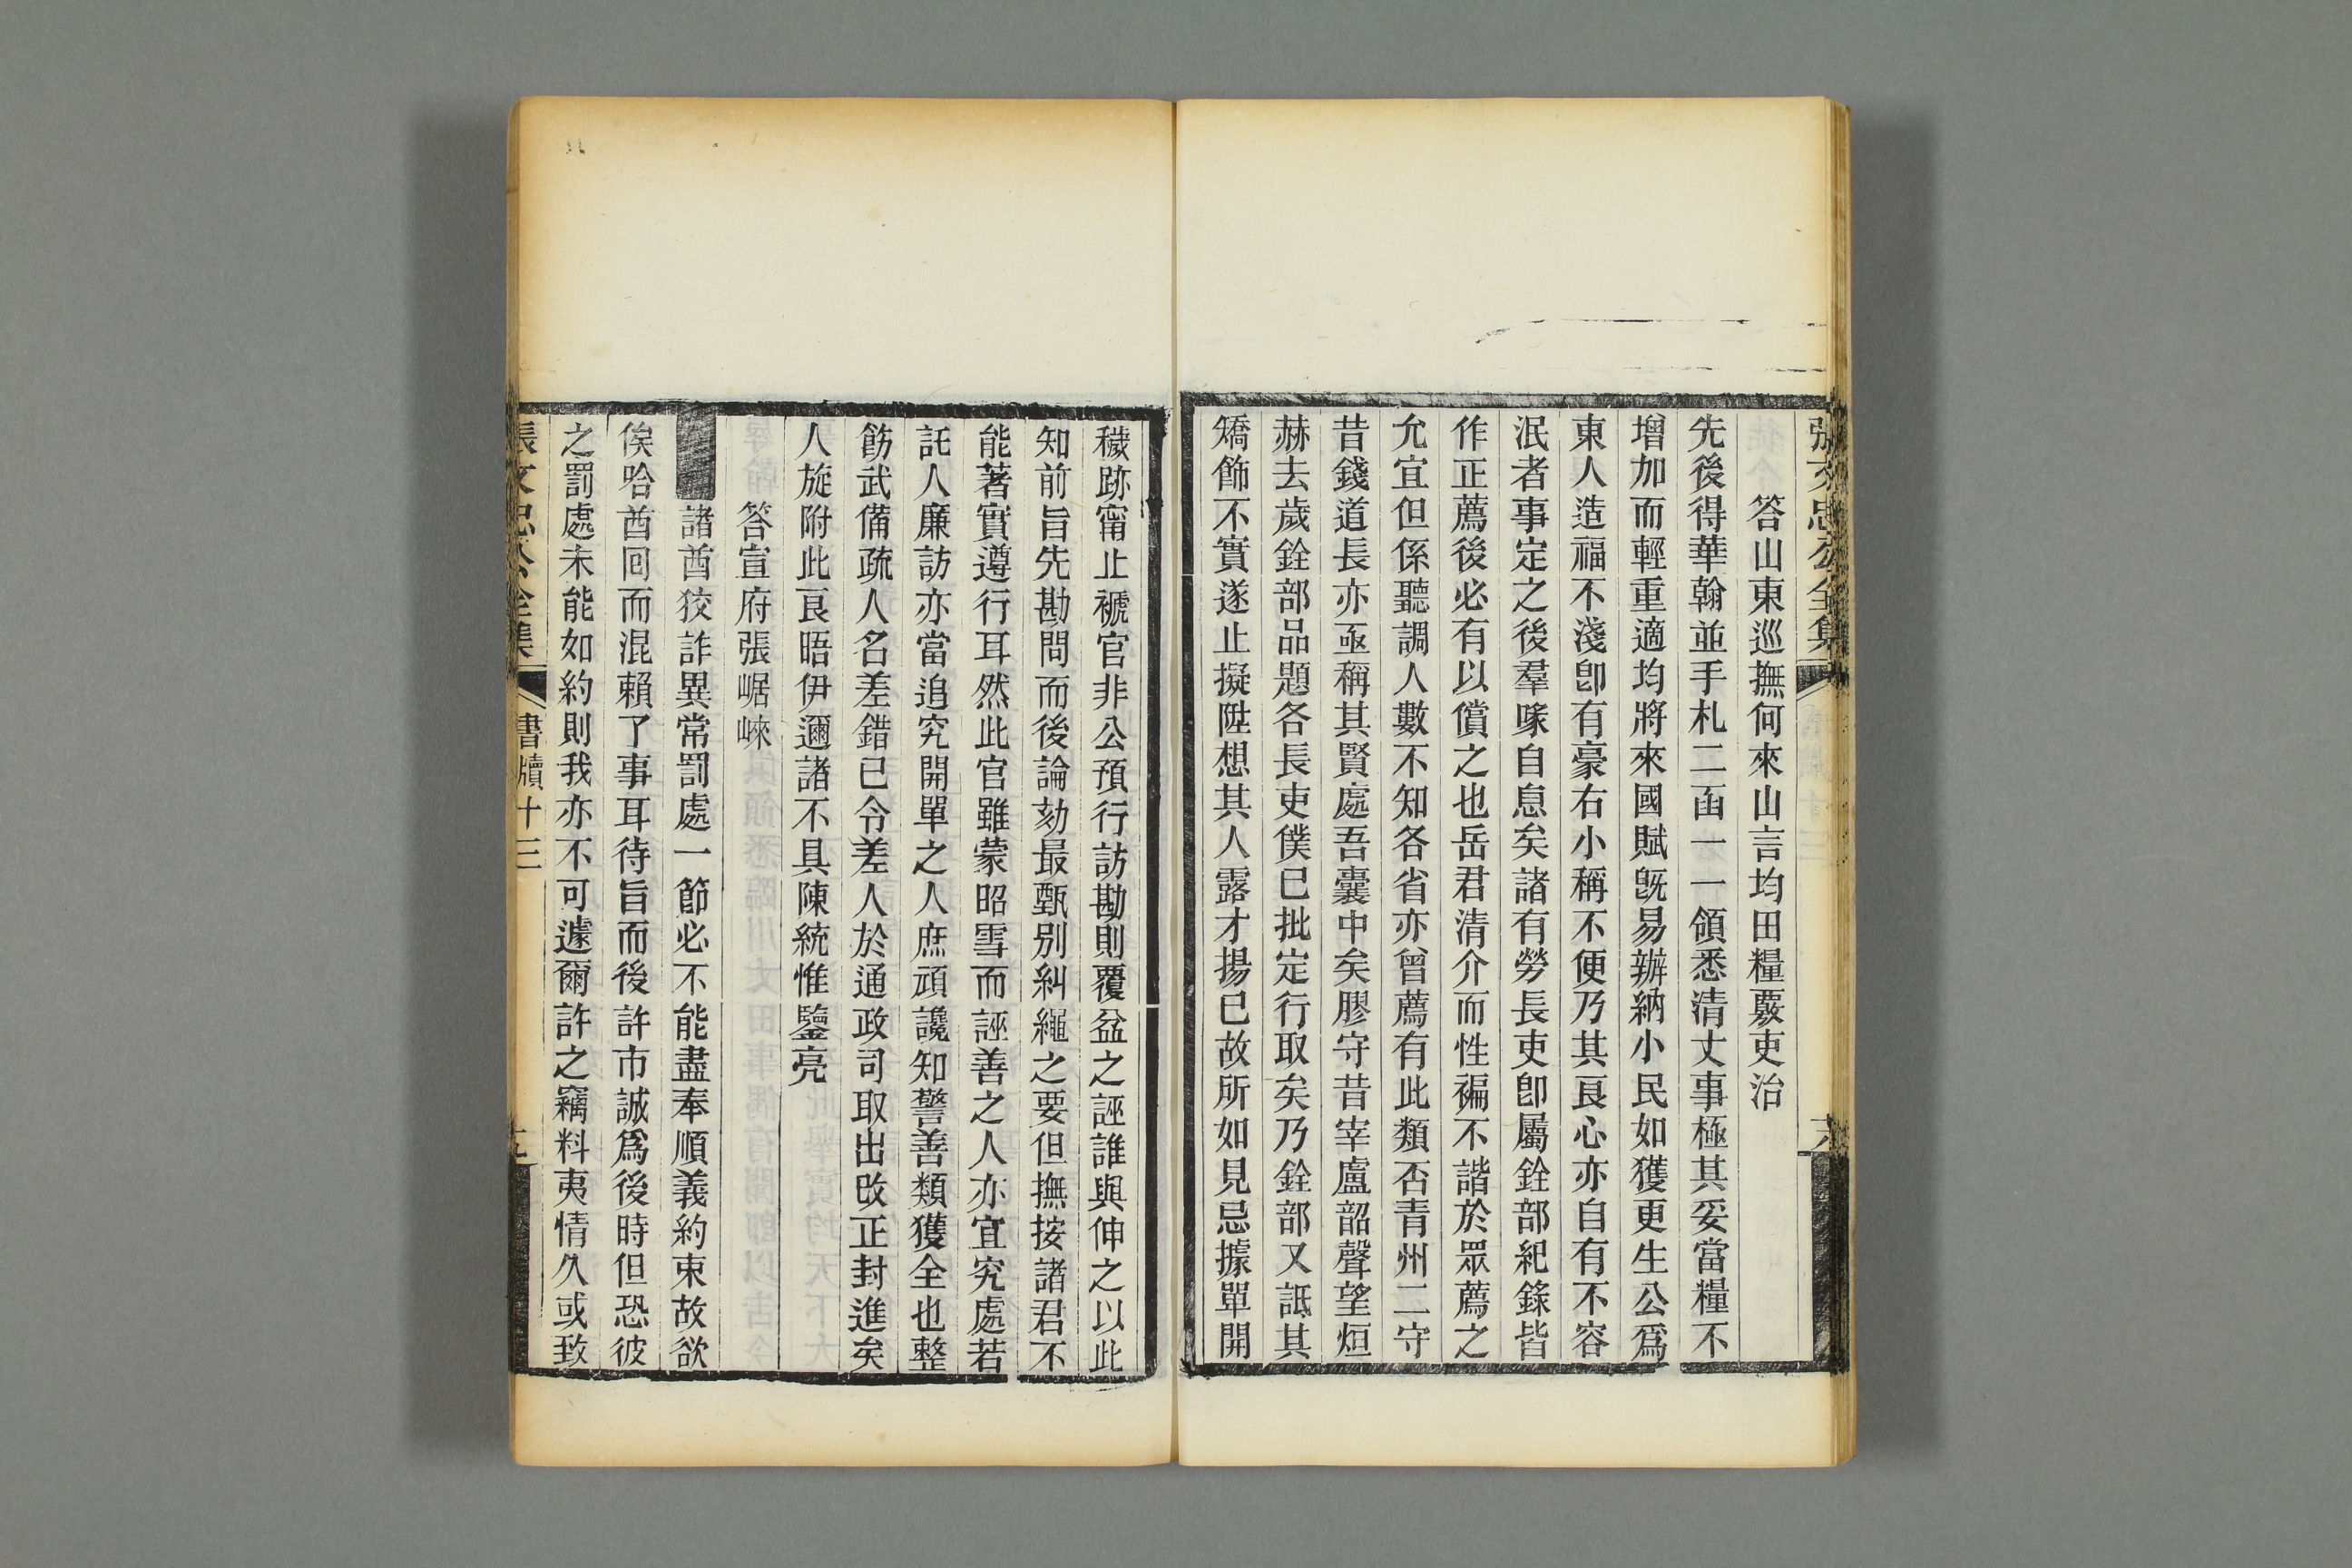 張文忠公全集
六
答山東巡撫何來山言均田糧覈吏治
先後得華翰並手札二函一一領悉清丈事極其妥當糧不
增加而輕重適均將來國賦旣易辦納小民如獲更生公爲
東人造福不淺卽有豪右小稱不便乃其良心亦自有不容
泯者事定之後羣喙自息矣諸有勞長吏卽屬銓部紀錄皆
作正薦後必有以償之也岳君清介而性褊不諧於眾薦之
允宜但係聽調人數不知各省亦曾薦有此類否青州二守
昔錢道長亦亟稱其賢處吾囊中矣膠守昔宰盧韶聲望烜
赫去歲銓部品題各長吏僕已批定行取矣乃銓部又詆其
矯飾不實遂止擬陞想其人露才揚已故所如見忌據單開
穢跡甯止褫官非公預行訪勘則覆盆之誣誰與伸之以此
知前旨先勘問而後論劾最甄別糾繩之要但撫按諸君不
能著實遵行耳然此官雖蒙昭雪而誣善之人亦宜究處若
託人廉訪亦當追究開單之人庶頑讒知警善類獲全也整
飭武備疏人名差錯已令差人於通政司取出改正封進矣
人旋附此良晤伊邇諸不具陳統惟鑒亮
答宣府張崌崍
諸酋狡詐異常罰處一節必不能盡奉順義約束故欲
俟哈酋回而混賴了事耳待旨而後許市誠爲後時但恐彼
之罰處未能如約則我亦不可遽爾許之竊料夷情久或致
張文忠公全集
書牘十三